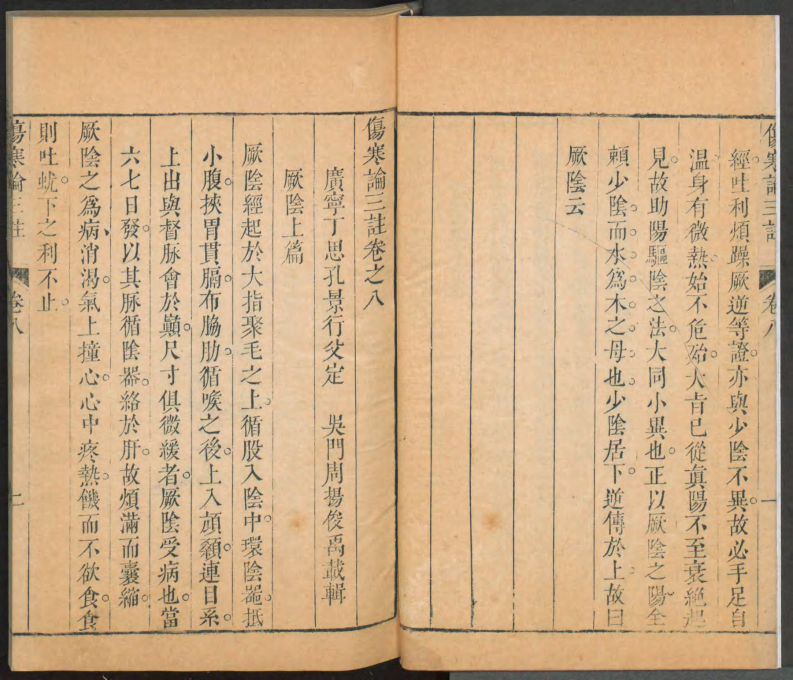 傷寒論三註
卷八
一
經吐利煩躁厥逆等證亦與少陰不異故必手足自
温身有微熱始不危殆大旨已從眞陽不至衰絶起
見故助陽驅陰之法大同小異也正以厥陰之陽全
頼少陰而水爲木之母也少陰居下逆傳於上故曰
厥陰云
傷寒論三註卷之八
廣寧丁思孔景行父定 吳門周揚俊禹載輯
厥陰上篇
厥陰經起於大指聚毛之上循股入陰中環陰噐抵
小腹挾胃貫膈布脇肋循喉之後上入頏顙連目系
上出與督脉會於巔尺寸俱微緩者厥陰受病也當
六七日發以其脉循陰器絡於肝故煩滿而囊縮
厥陰之爲病消渴氣上撞心心中疼熱饑而不欲食食
則吐蚘下之利不止
傷寒論三註
卷八
二